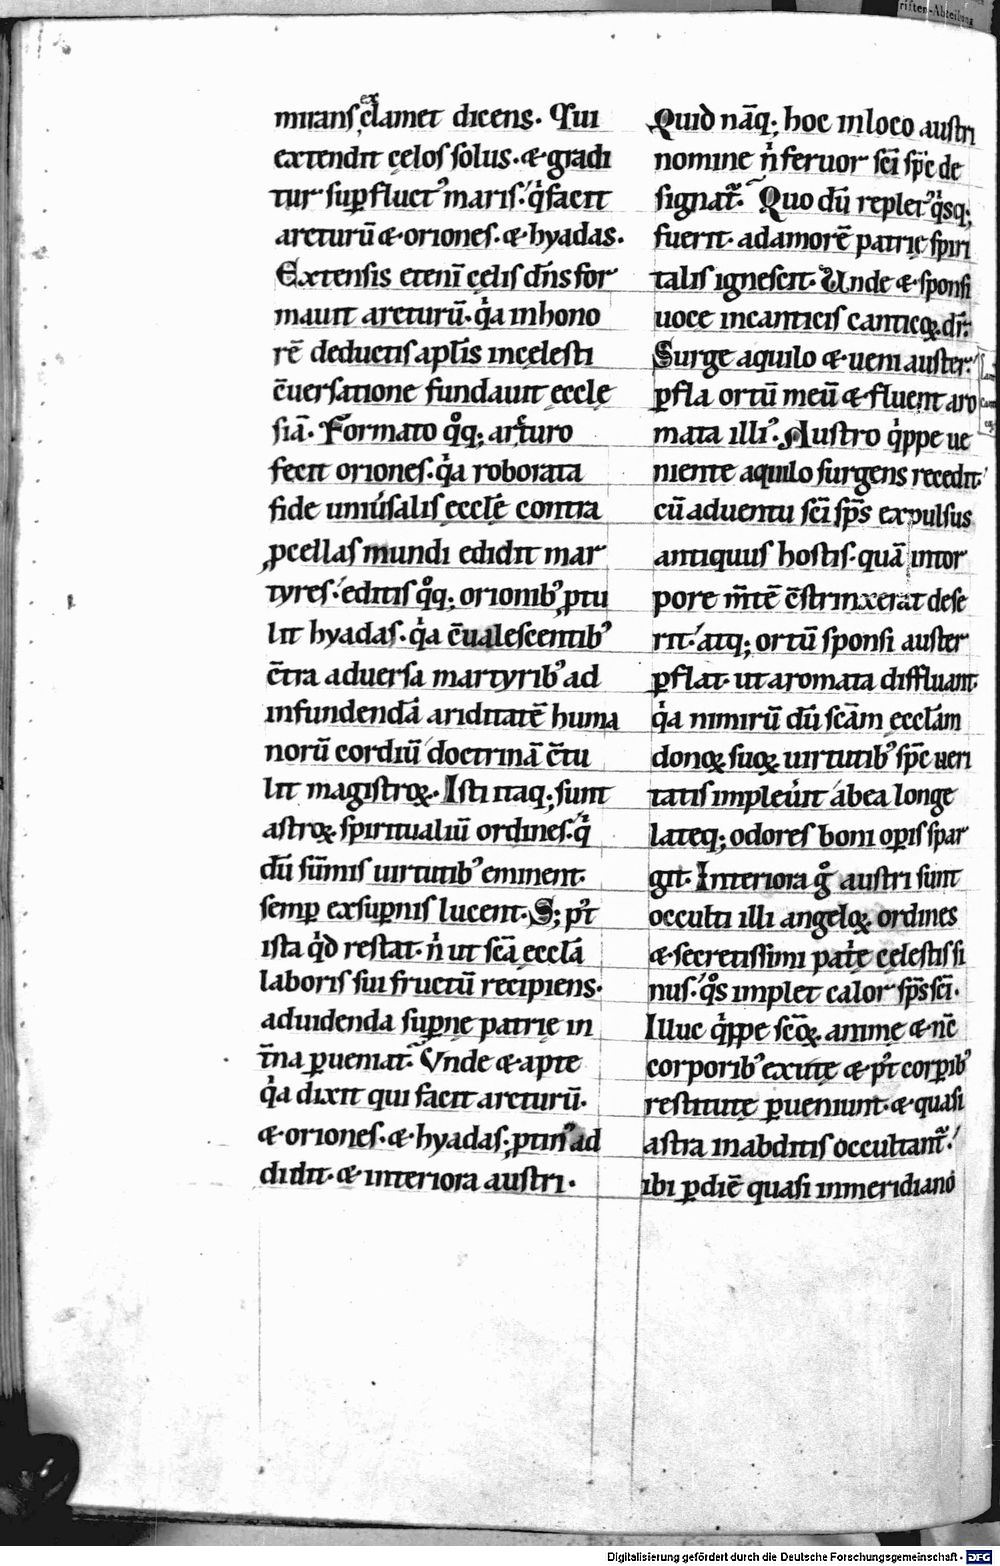 mirans exclamet dicens. Qui
extendit cęlos solus. & gradi
tur sup̱ fluct᷒ maris.' qͥ facit
arcturū & oriones. & hyadas.
Extensis etenī cęlis dn̄s for
mauit arcturū. qͥa in hono
rē deductis apl̄is in cęlesti
c̄uersatione fundauit eccle
siā. Formato qͦq; arcturo
fecit oriones. qͥa roborata
fide uniu͛salis ęccl̄ę contra
ꝓcellas mundi edidit mar
tyres.' editis qͦq; orionib᷒ ꝓtu
lit hyadas. qͥa c̄ualescentib᷒
c̄tra aduersa martyrib᷒ ad
infundendā ariditatē huma
norū cordiū doctrinā c̄tu
lit magistroꝝ. Isti itaq; sunt
astroꝝ spiritualiū ordines. qͥ
dū sūmis uirtutib᷒ eminent.
semꝑ ex suꝑnis lucent. S; p᷒t
ista qͥd restat. nͥ ut sc̄a ęccl̄a
laboris sui fructū recipiens.
ad uidenda suꝑnę patrię in
t̄na ꝑueniat. Vnde & apte
qͥa dixit qui facit arcturū.
& oriones. & hyadas; ꝓtin᷒ ad
didit. & interiora austri.
Quid nāq; hoc in loco austri
nomine nͥ feruor sc̄i sp̄c de
signat᷒. Quo dū replet᷒ qͥsq;
fuerit. ad amorē patrię spiri
talis ignescit. Unde & sponsi
uoce in canticis canticoꝝ dr̄.
Surge aquilo & ueni auster.'
ꝑfla ortū meū & fluent aro
mata illi᷒. Austro qͥppe ue
niente aquilo surgens recedit.'
cū aduentu sc̄i sp̄s expulsus
antiquus hostis. quā in tor
pore m̄tē c̄strinxerat dese
rit.' atq; ortū sponsi auster
ꝑflat. ut aromata diffluant.
qͥa nimirū dū sc̄am ęccl̄am
donoꝝ suoꝝ uirtutib᷒ sp̄c ueri
tatis impleu͛it ab ea longe
lateq; odores boni oꝑis spar
git. Interiora gͦ austri sunt
occulti illi angeloꝝ ordines
& secretissimi pat͛ę cęlestis si
nus.' qͦs implet calor sp̄s sc̄i.
Illuc qͥppe sc̄oꝝ animę & nc̄
corporib᷒ exutę & p᷒t corꝑib᷒
restitutę ꝑueniunt. & quasi
astra in abditis occultant᷒.'
ibi ꝑ diē quasi in meridiano
Digitalisierung gefördert durch die Deutsche Forschungsgemeinschaft - DFG